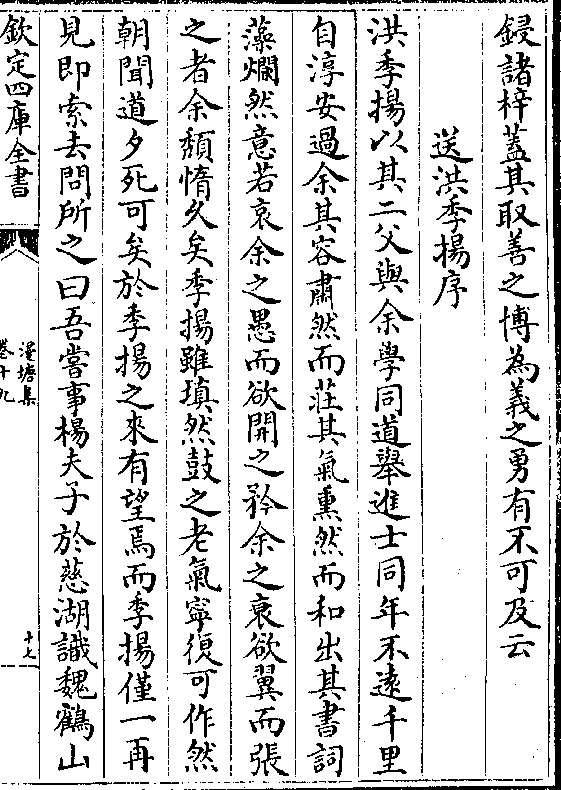 鋟諸梓蓋其取善之博為義之勇有不可及云
送洪季揚序
洪季揚以其二父與余學同道舉進士同年不逺千里
自淳安過余其容肅然而莊其氣熏然而和出其書詞
藻爛然意若哀余之愚而欲開之矜余之衰欲翼而張
之者余頽惰久矣季揚雖瑱然鼓之老氣寜復可作然
朝聞道夕死可矣於季揚之來有望焉而季揚僅一再
見即索去問所之曰吾嘗事楊夫子於慈湖識魏鶴山
欽定四庫全書
漫塘集
卷十九
十七